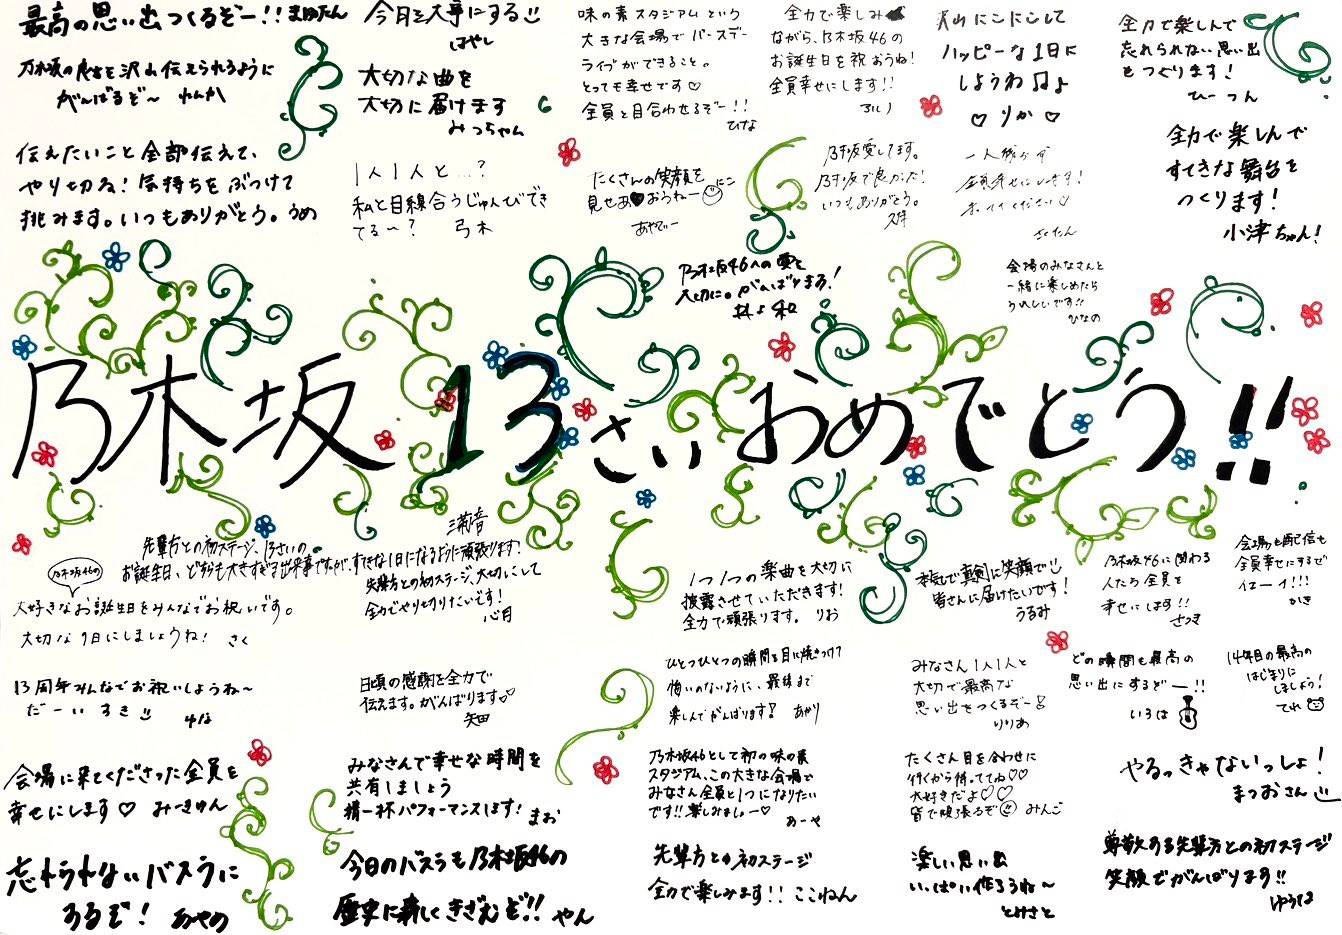 最高の思い出つくるぞー!! まゆたん
乃木坂の良さを沢山伝えられるように
がんばるぞ〜 れんか
伝えたいこと全部伝えて、
やり切るね!気持ちをぶつけて
挑みます。いつもありがとう。うめ
今日を大事にする
はやし
大切な曲を
大切に届けます
みっちゃん
1人1人と…?
私と目線合うじゅんびでき
てる〜? 弓木
味の素スタジアムという
大きな会場でバースデー
ライブができること。
とっても幸せです♡
全員と目合わせるぞー!!
ひな
たくさんの笑顔を
見せあおうねー
にこ
あやてぃー
全力で楽しみ
ながら、乃木坂46の
お誕生日を祝おうね!
全員幸せにします!!
るい
乃木坂愛してます。
乃木坂で良かった!
いつもありがとう。
乃木坂46への愛を
大切に。がんばります!
井上 和
沢山にこにこして
ハッピーな1日に
しようね♫♪
♡りか♡
一人残らず
全員幸せにします!
さくたん
会場のみなさんと
一緒に楽しめたら
うれしいです!!
ひなの
全力で楽しんで
忘れられない思い出
をつくります!
ひーつん
全力で楽しんで
すてきな舞台を
つくります!
小津ちゃん!
乃木坂13さいおめでとう!!
先輩方との初ステージ、13さいの
お誕生日、どちらも大きすぎる出来事ですが、すてきな1日になるように頑張ります!
乃木坂46の
大好きなお誕生日をみんなでお祝いです。
大切な1日にしましょうね! さく
先輩方との初ステージ、大切にして
全力でやり切りたいです!
心月
1つ1つの楽曲を大切に
披露させていただきます!
全力で頑張ります。 りお
本気で真剣に笑顔で
皆さんに届けたいです!
うるみ
乃木坂46に関わる
人たち全員を
幸せにします!!
さつき
会場も配信も
全員幸せにするで
イェーイ!!!
かき
13周年みんなでお祝いしようね〜
だーいすき ゆな
日頃の感謝を全力で
伝えます。がんばります♡
矢田
ひとつひとつの瞬間を目に焼きつけて
悔いのないように、最後まで
楽しんでがんばります! あかり
みなさん1人1人と
大切で最高な
思い出をつくるぞー!
りりあ
どの瞬間も最高の
思い出にするぞー!!
いろは
14年目の最高の
はじまりに
しましょう!
てれ
会場に来てくださった全員を
幸せにします♡ みーきゅん
みなさんで幸せな時間を
共有しましょう
精一杯パフォーマンスします! まお
乃木坂46として初の味の素
スタジアム、この大きな会場で
みなさん全員と1つになりたい
です!!楽しみましょー♡
あーや
たくさん目を合わせに
行くから待っててね♡♡
大好きだよ♡♡
皆で頑張るぞ みんご
やるっきゃないっしょ!
まつおさん
忘れられないバスラに
するぞ! あやめ
今日のバスラも乃木坂46の
歴史に新しくきざむぞ!! やん
先輩方との初ステージ
全力で楽しみます!! ここねん
楽しい思い出
いっぱい作ろうね〜
とみさと
尊敬する先輩方との初ステージ
笑顔でがんばります!!
ゆうな